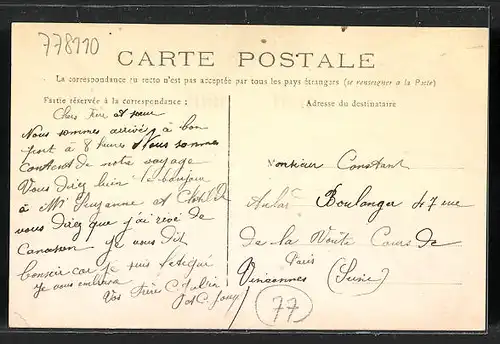 778110
CARTE POSTALE
La correspondance au recto n'est pas acceptée par tous les pays étrangers (se renseigner à la Poste)
Partie réservée à la correspondance :
Adresse du destinataire
Chers Frère et sœur
Nous sommes arrivés à bon
port à 8 heures Nous sommes
content de notre voyage
Vous direz bien le bonjour
à Mr Suzanne et
vous direz que j'ai rêvé de
je vous dit
bonsoir car je suis
je vous embrasse
Vos Frères C
et C.
Monsieur Constant
Boulanger 47 rue
de la Voute Cours de
Paris
Vincennes (Seine)
77